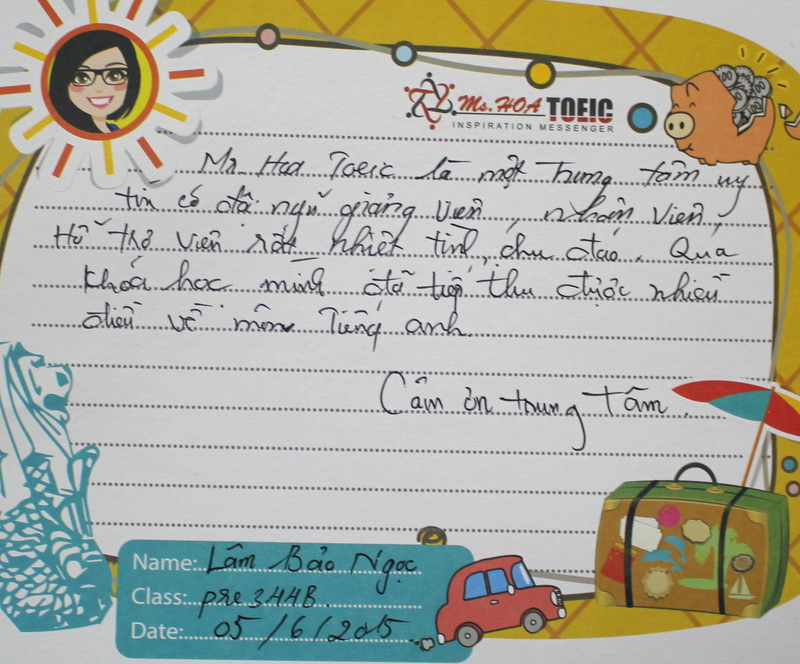 Ms. HOA TOEIC
INSPIRATION MESSENGER
Ms Hoa Toeic là một trung tâm uy
tín có đội ngũ giảng viên, nhân viên,
Hỗ trợ viên rất nhiệt tình, chu đáo. Qua
khóa học mình đã tiếp thu được nhiều
điều về môn Tiếng anh.
Cảm ơn trung Tâm.
Name: Lâm Bảo Ngọc
Class: pre 344B.
Date: 05/6/2015